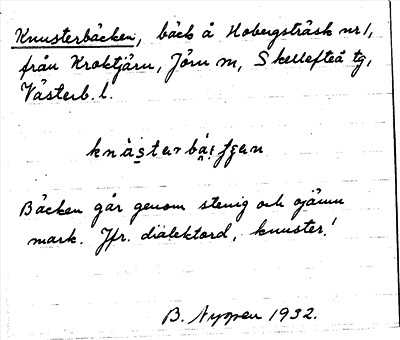 Knusterbäcken, bäck å Hobergsträsk nr 1,
från Kroktjärn, Jörn m, Skellefteå tg,
Västerb. l.
Bäcken går genom stenig och ojämn
mark. Jfr. dialektord, knuster!
B. Nyspen 1932.